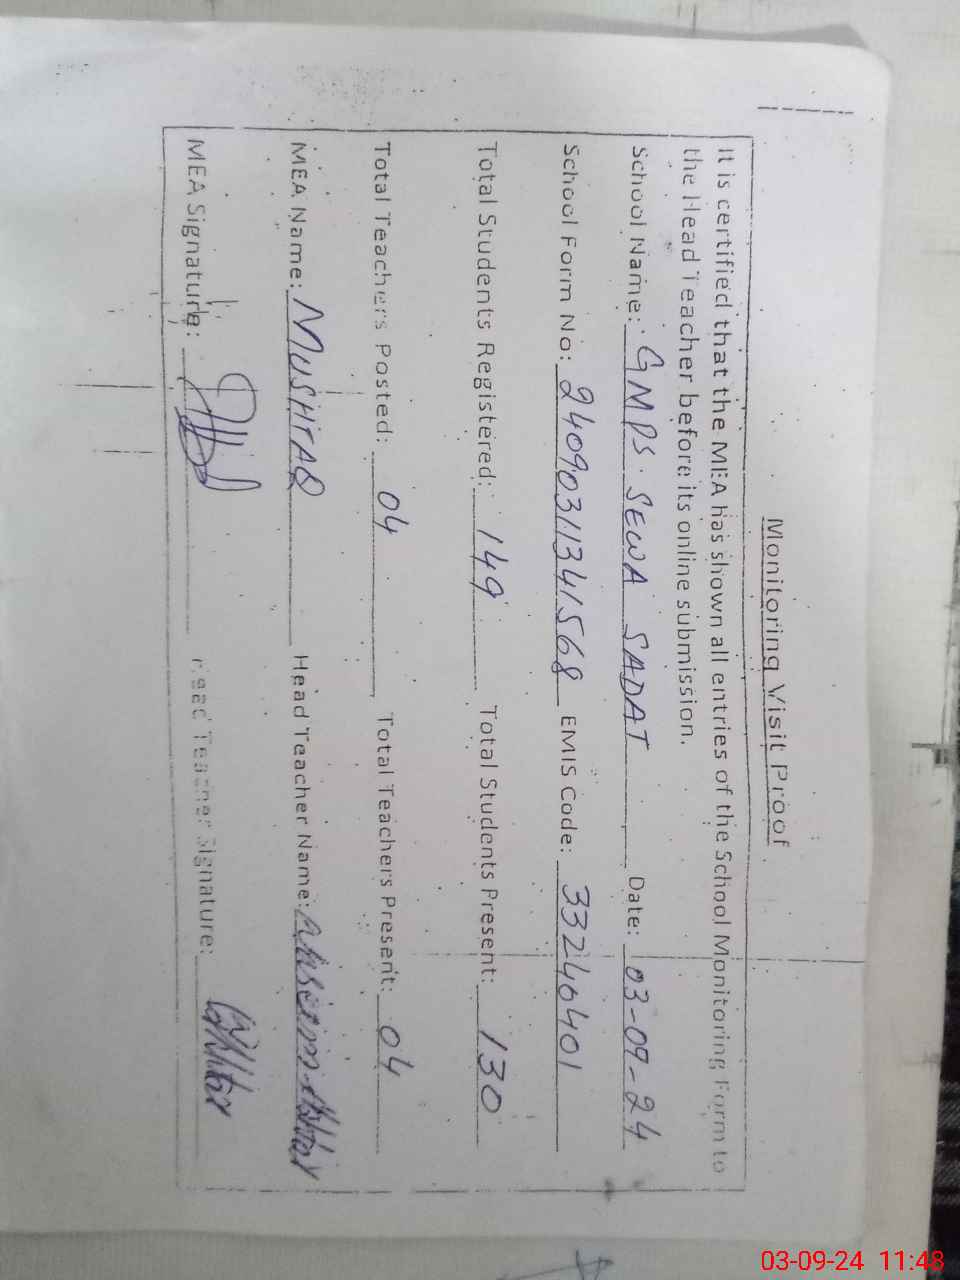 Monitoring Visit Proof
It is certified that the MEA has shown all entries of the School Monitoring Form to
the Head Teacher before its online submission.
School Name: GMPS. SEWA SADAT Date: 03-09-24
School Form No: 2409031341568 EMIS Code: 33240401
Total Students Registered: 149 Total Students Present: 130
Total Teachers Posted: 04 Total Teachers Present: 04
MEA Name: MUSHTAQ Head Teacher Name:
MEA Signature: Head Teacher Signature:
03-09-24 11:48